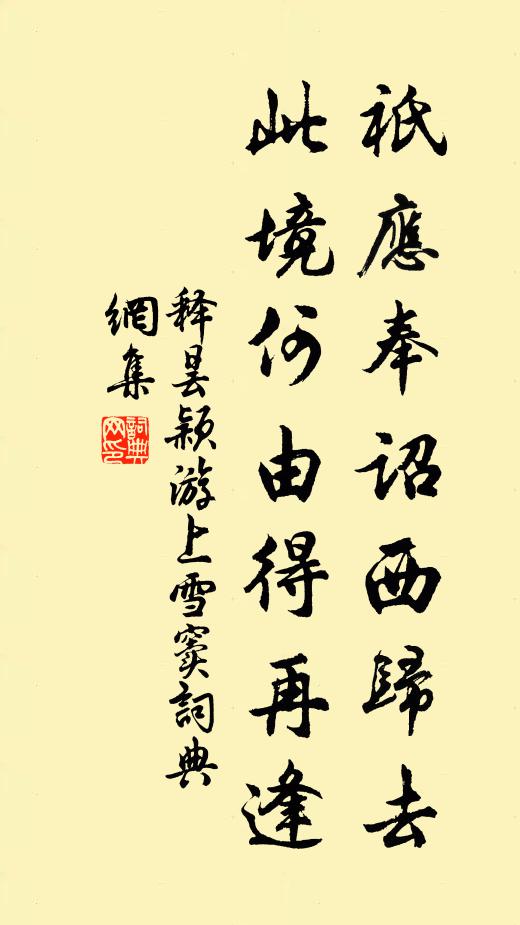 祇應奉詔西歸去
此境何由得再逢
释曇颖游上雪窦詞典
網集
詞典網印